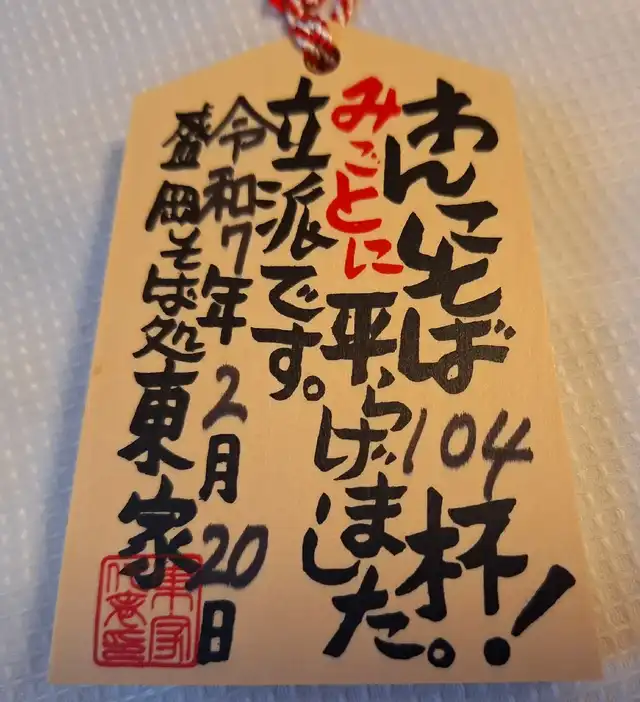 わんこそば104杯!
みごとに平らげました。
立派です。
令和7年2月20日
盛岡そば処東家